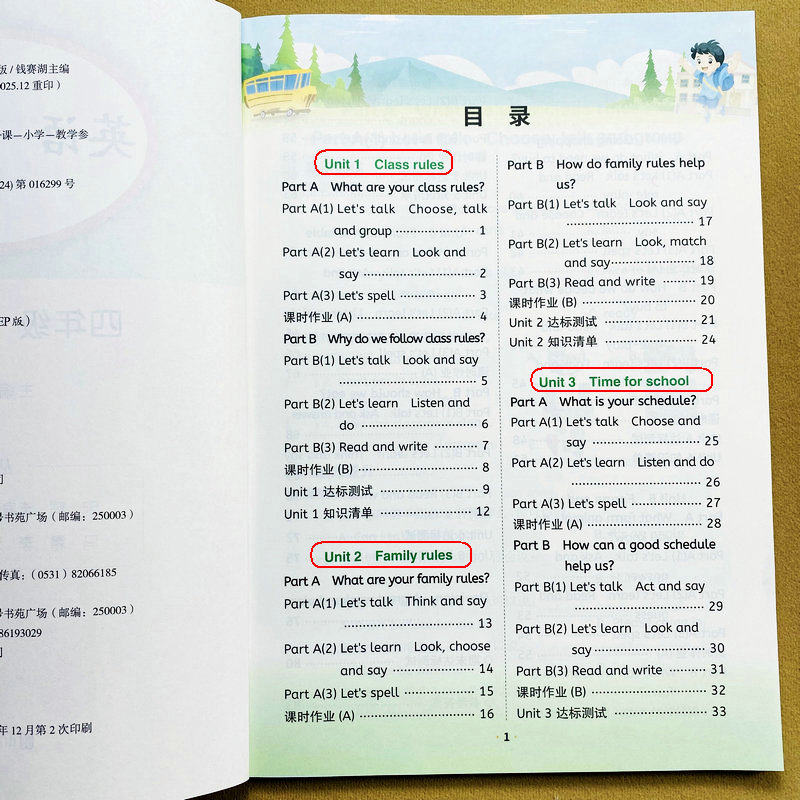 版/钱赛湖主编
2025.12 重印）
课—小学—教学参
24) 第 016299 号
EP版）
号书苑广场（邮编：250003）
传真：（0531）82066185
号书苑广场（邮编：250003）
86193029
年 12 月第 2 次印刷
目 录
Unit 1 Class rules
Part A What are your class rules?
Part A(1) Let's talk Choose, talk
and group 1
Part A(2) Let's learn Look and
say 2
Part A(3) Let's spell 3
课时作业 (A) 4
Part B Why do we follow class rules?
Part B(1) Let's talk Look and say
5
Part B(2) Let's learn Listen and
do 6
Part B(3) Read and write 7
课时作业 (B) 8
Unit 1 达标测试 9
Unit 1 知识清单 12
Unit 2 Family rules
Part A What are your family rules?
Part A(1) Let's talk Think and say
13
Part A(2) Let's learn Look, choose
and say 14
Part A(3) Let's spell 15
课时作业 (A) 16
Part B How do family rules help
us?
Part B(1) Let's talk Look and say
17
Part B(2) Let's learn Look, match
and say 18
Part B(3) Read and write 19
课时作业 (B) 20
Unit 2 达标测试 21
Unit 2 知识清单 24
Unit 3 Time for school
Part A What is your schedule?
Part A(1) Let's talk Choose and
say 25
Part A(2) Let's learn Listen and do
26
Part A(3) Let's spell 27
课时作业 (A) 28
Part B How can a good schedule
help us?
Part B(1) Let's talk Act and say
29
Part B(2) Let's learn Look and
say 30
Part B(3) Read and write 31
课时作业 (B) 32
Unit 3 达标测试 33
1